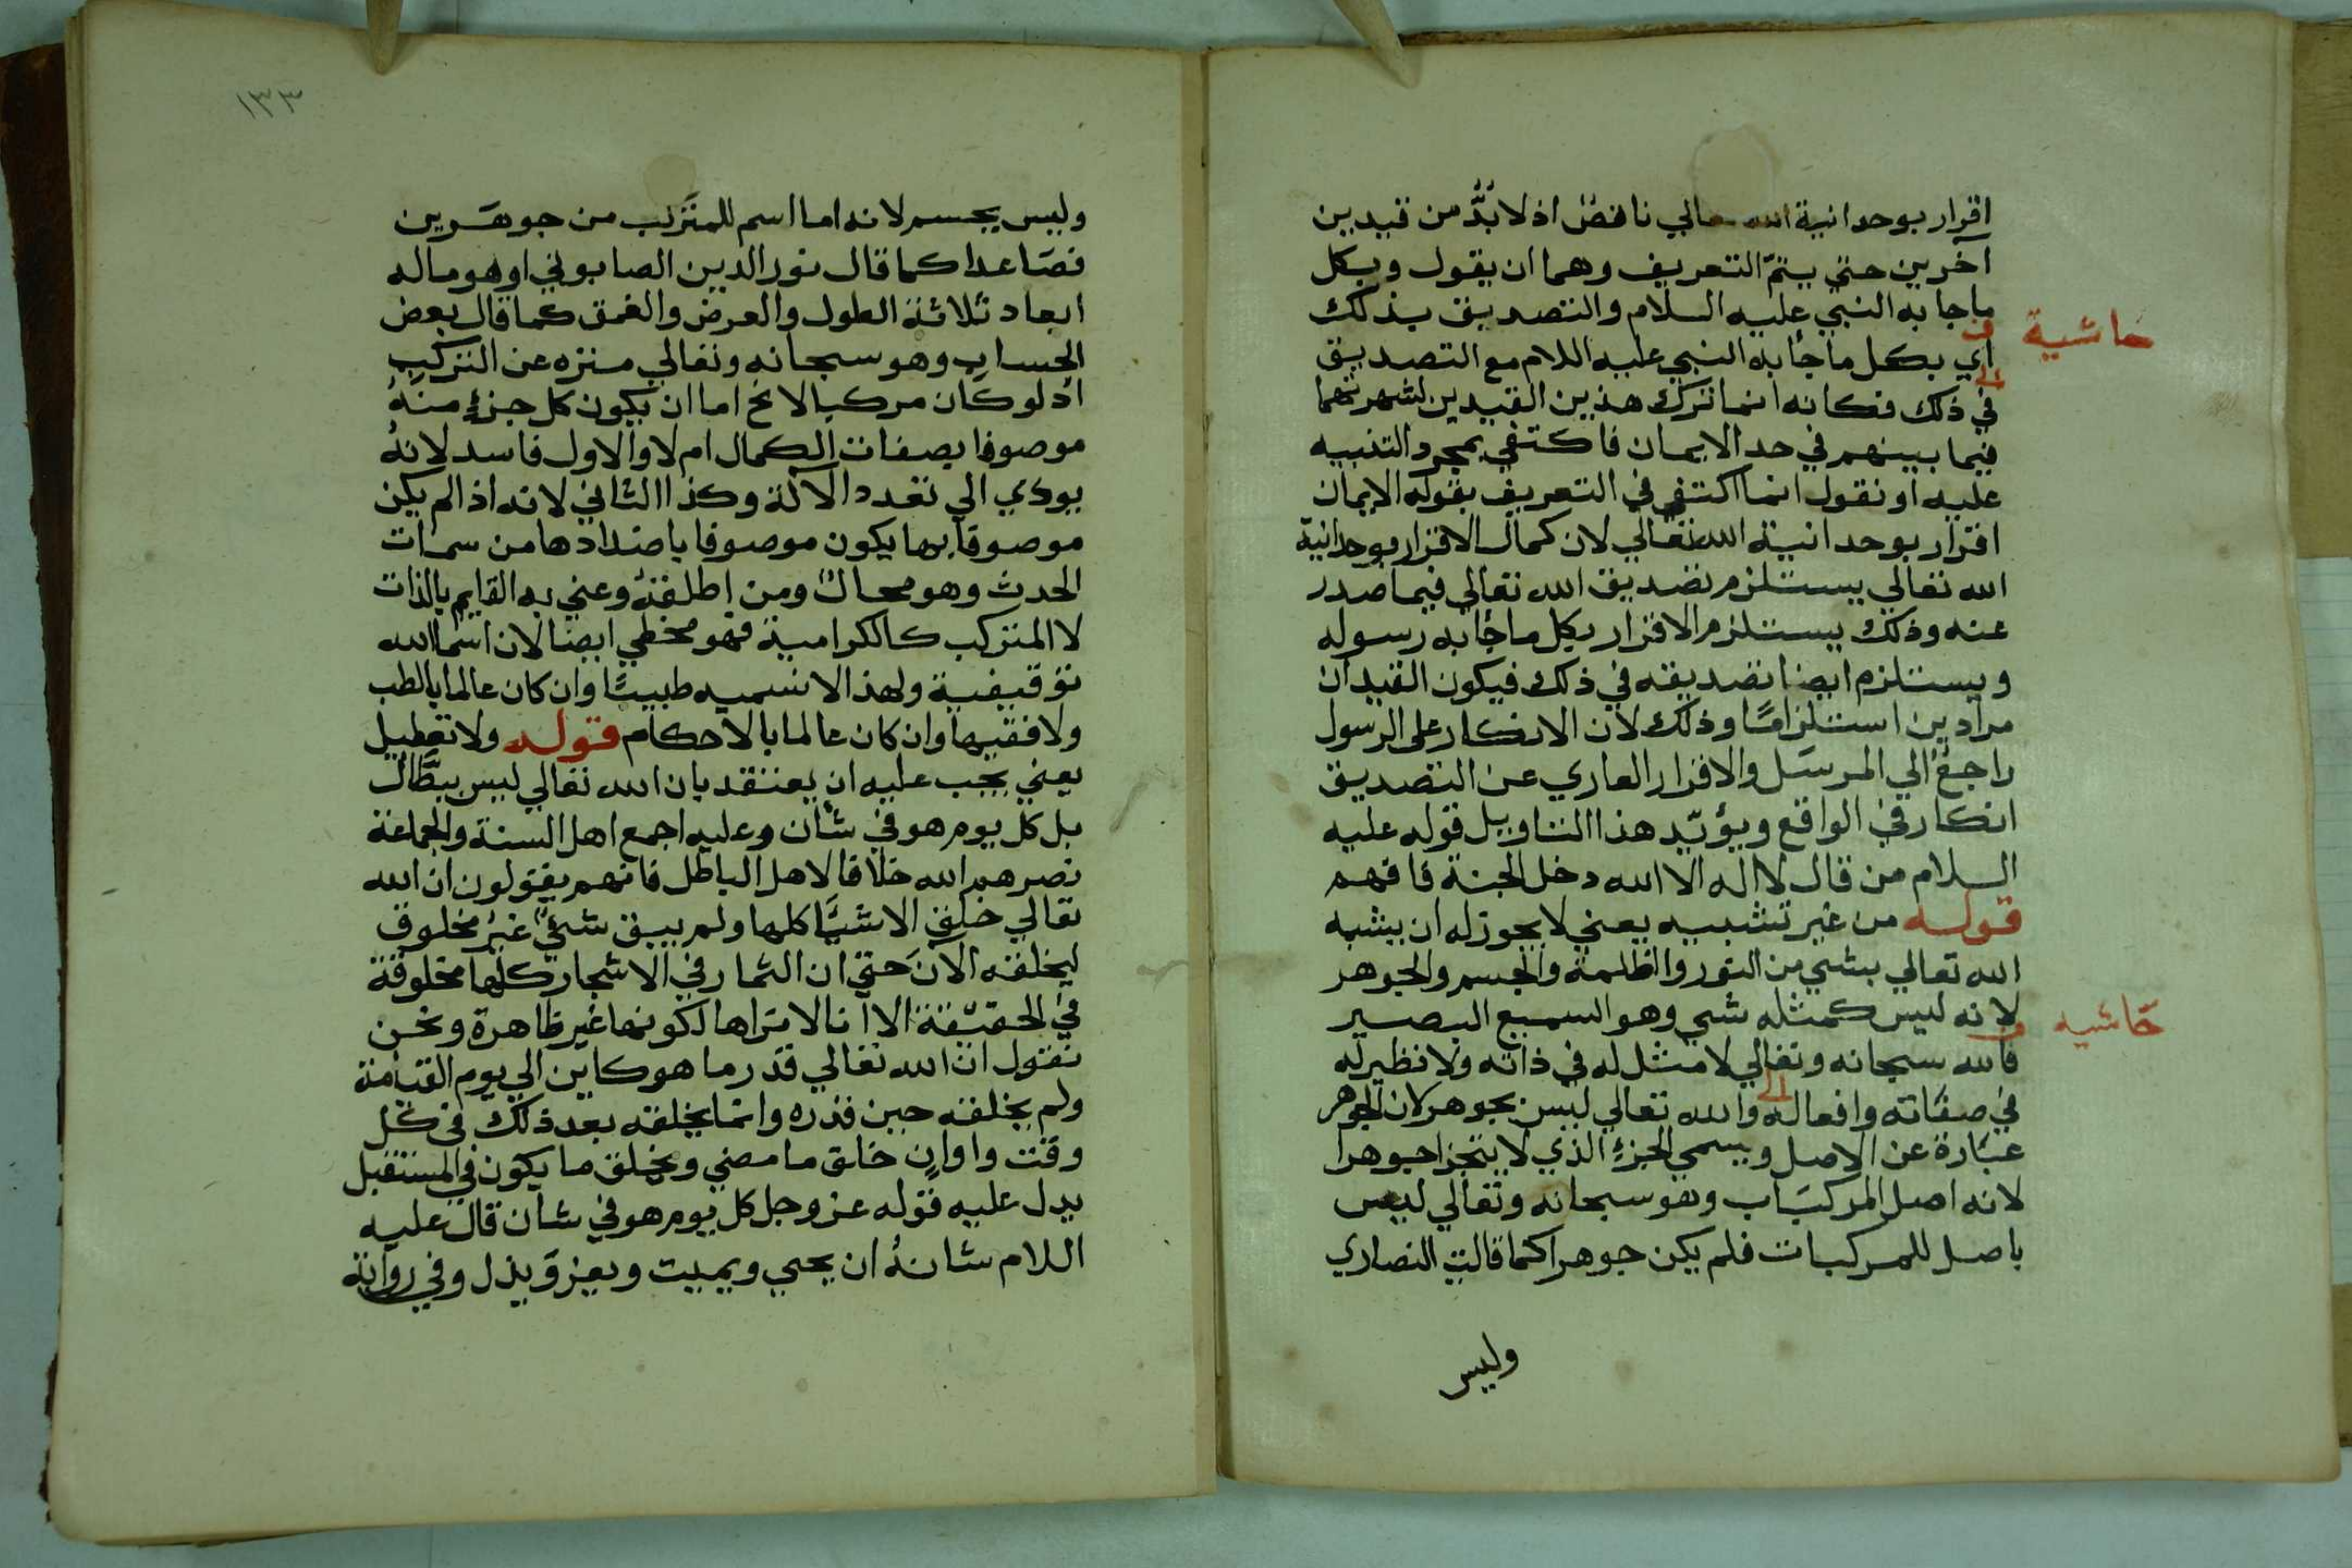 اقرار بوحدانية الله تعالي ناقض اذ لا بدّ من قيدين
آخرين حتي يتمّ التعريف وهما ان يقول وبكل
ماجا به النبي عليه السلام والتصديق بذلك
حاشية
اي بكل ما جأ به النبي عليه اللام مع التصديق
في ذلك فكانه انما ترك هذين القيدين لشهرتهما
فيما بينهم في حد الايمان فاكتفي بمجرد التنبيه
عليه او نقول انما اكتفي في التعريف بقوله الايمان
اقرار بوحدانية الله تعالي لان كمال الاقرار بوحدانية
الله تعالي يستلزم تصديق الله تعالي فيما صدر
عنه وذلك يستلزم الاقرار بكل ما جأ به رسوله
ويستلزم ايضا تصديقه في ذلك فيكون القيدان
مرادين استلزامًا وذلك لان الانكار على الرسول
راجعٌ الي المرسَل والاقرار العاري عن التصديق
انكار في الواقع ويؤيّد هذا التاويل قوله عليه
السلام من قال لا اله الا الله دخل الجنة فافهم
قوله من غير تشبيه يعني لا يجوز له ان يشبه
الله تعالي بشي من النور والظلمة والجسم والجوهر
لانه ليس كمثله شي وهو السميع البصير
حاشيه
فالله سبحانه وتعالي لا مثل له في ذاته ولا نظير له
في صفاته وافعاله والله تعالي ليس بجوهر لان الجوهر
عبارة عن الاصل ويسمي الجزء الذي لا يتجزا جوهرا
لانه اصل المركبَاب وهو سبحانه وتعالي ليس
باصل للمركبات فلم يكن جوهرا كما قالت النصاري
وليس
١٣٣
وليس بجسم لانه اما اسم للمتركب من جوهَرين
فصَاعدا كما قال نور الدين الصابوني او هو ما له
ابعاد ثلاثة الطول والعرض والعمق كما قال بعض
الحساب وهو سبحانه وتعالي منزه عن التركيب
اذ لو كان مركبا لا يخ اما ان يكون كل جزءٍ منهُ
موصوفا بصفات الكمال ام لا والاول فاسد لانهُ
يودي الي تعدد الآلة وكذا الثاني لانه اذا لم يكن
موصوفا بها يكون موصوفا باضدادها من سمات
الحدث وهو محالٌ ومن اطلقهُ وعني به القايم بالذات
لا المتركب كالكرامية فهو مخطي ايضا لان اسما الله
توقيفية ولهذا لا نسميه طبيبًا وان كان عالما بالطب
ولا فقيها وان كان عالما بالاحكام قوله ولا تعطيل
يعني يجب عليه ان يعتقد بان الله تعالي ليس ببطَّال
بل كل يوم هو في شأن وعليه اجمع اهل السنة والجماعة
نصرهم الله خلافا لاهل الباطل فانهم يقولون ان الله
تعالي خلق الاشيَا كلها ولم يبق شئٌ غير مخلوق
ليخلقه الآنَ حتي ان الثمار في الاشجار كلها مخلوقة
في الحقيقة الا انا لا نراها لكونها غير ظاهرة ونحن
نقول ان الله تعالي قدر ما هو كاين الي يوم القيامة
ولم يخلقه حين قدره وانما يخلقه بعد ذلك في كل
وقت واوانٍ خالق ما مضي ويخلق ما يكون في المستقبل
يدل عليه قوله عز وجل كل يوم هو في شأن قال عليه
اللام شانهُ ان يحيي ويميت ويعز وَيذل وفي رواية